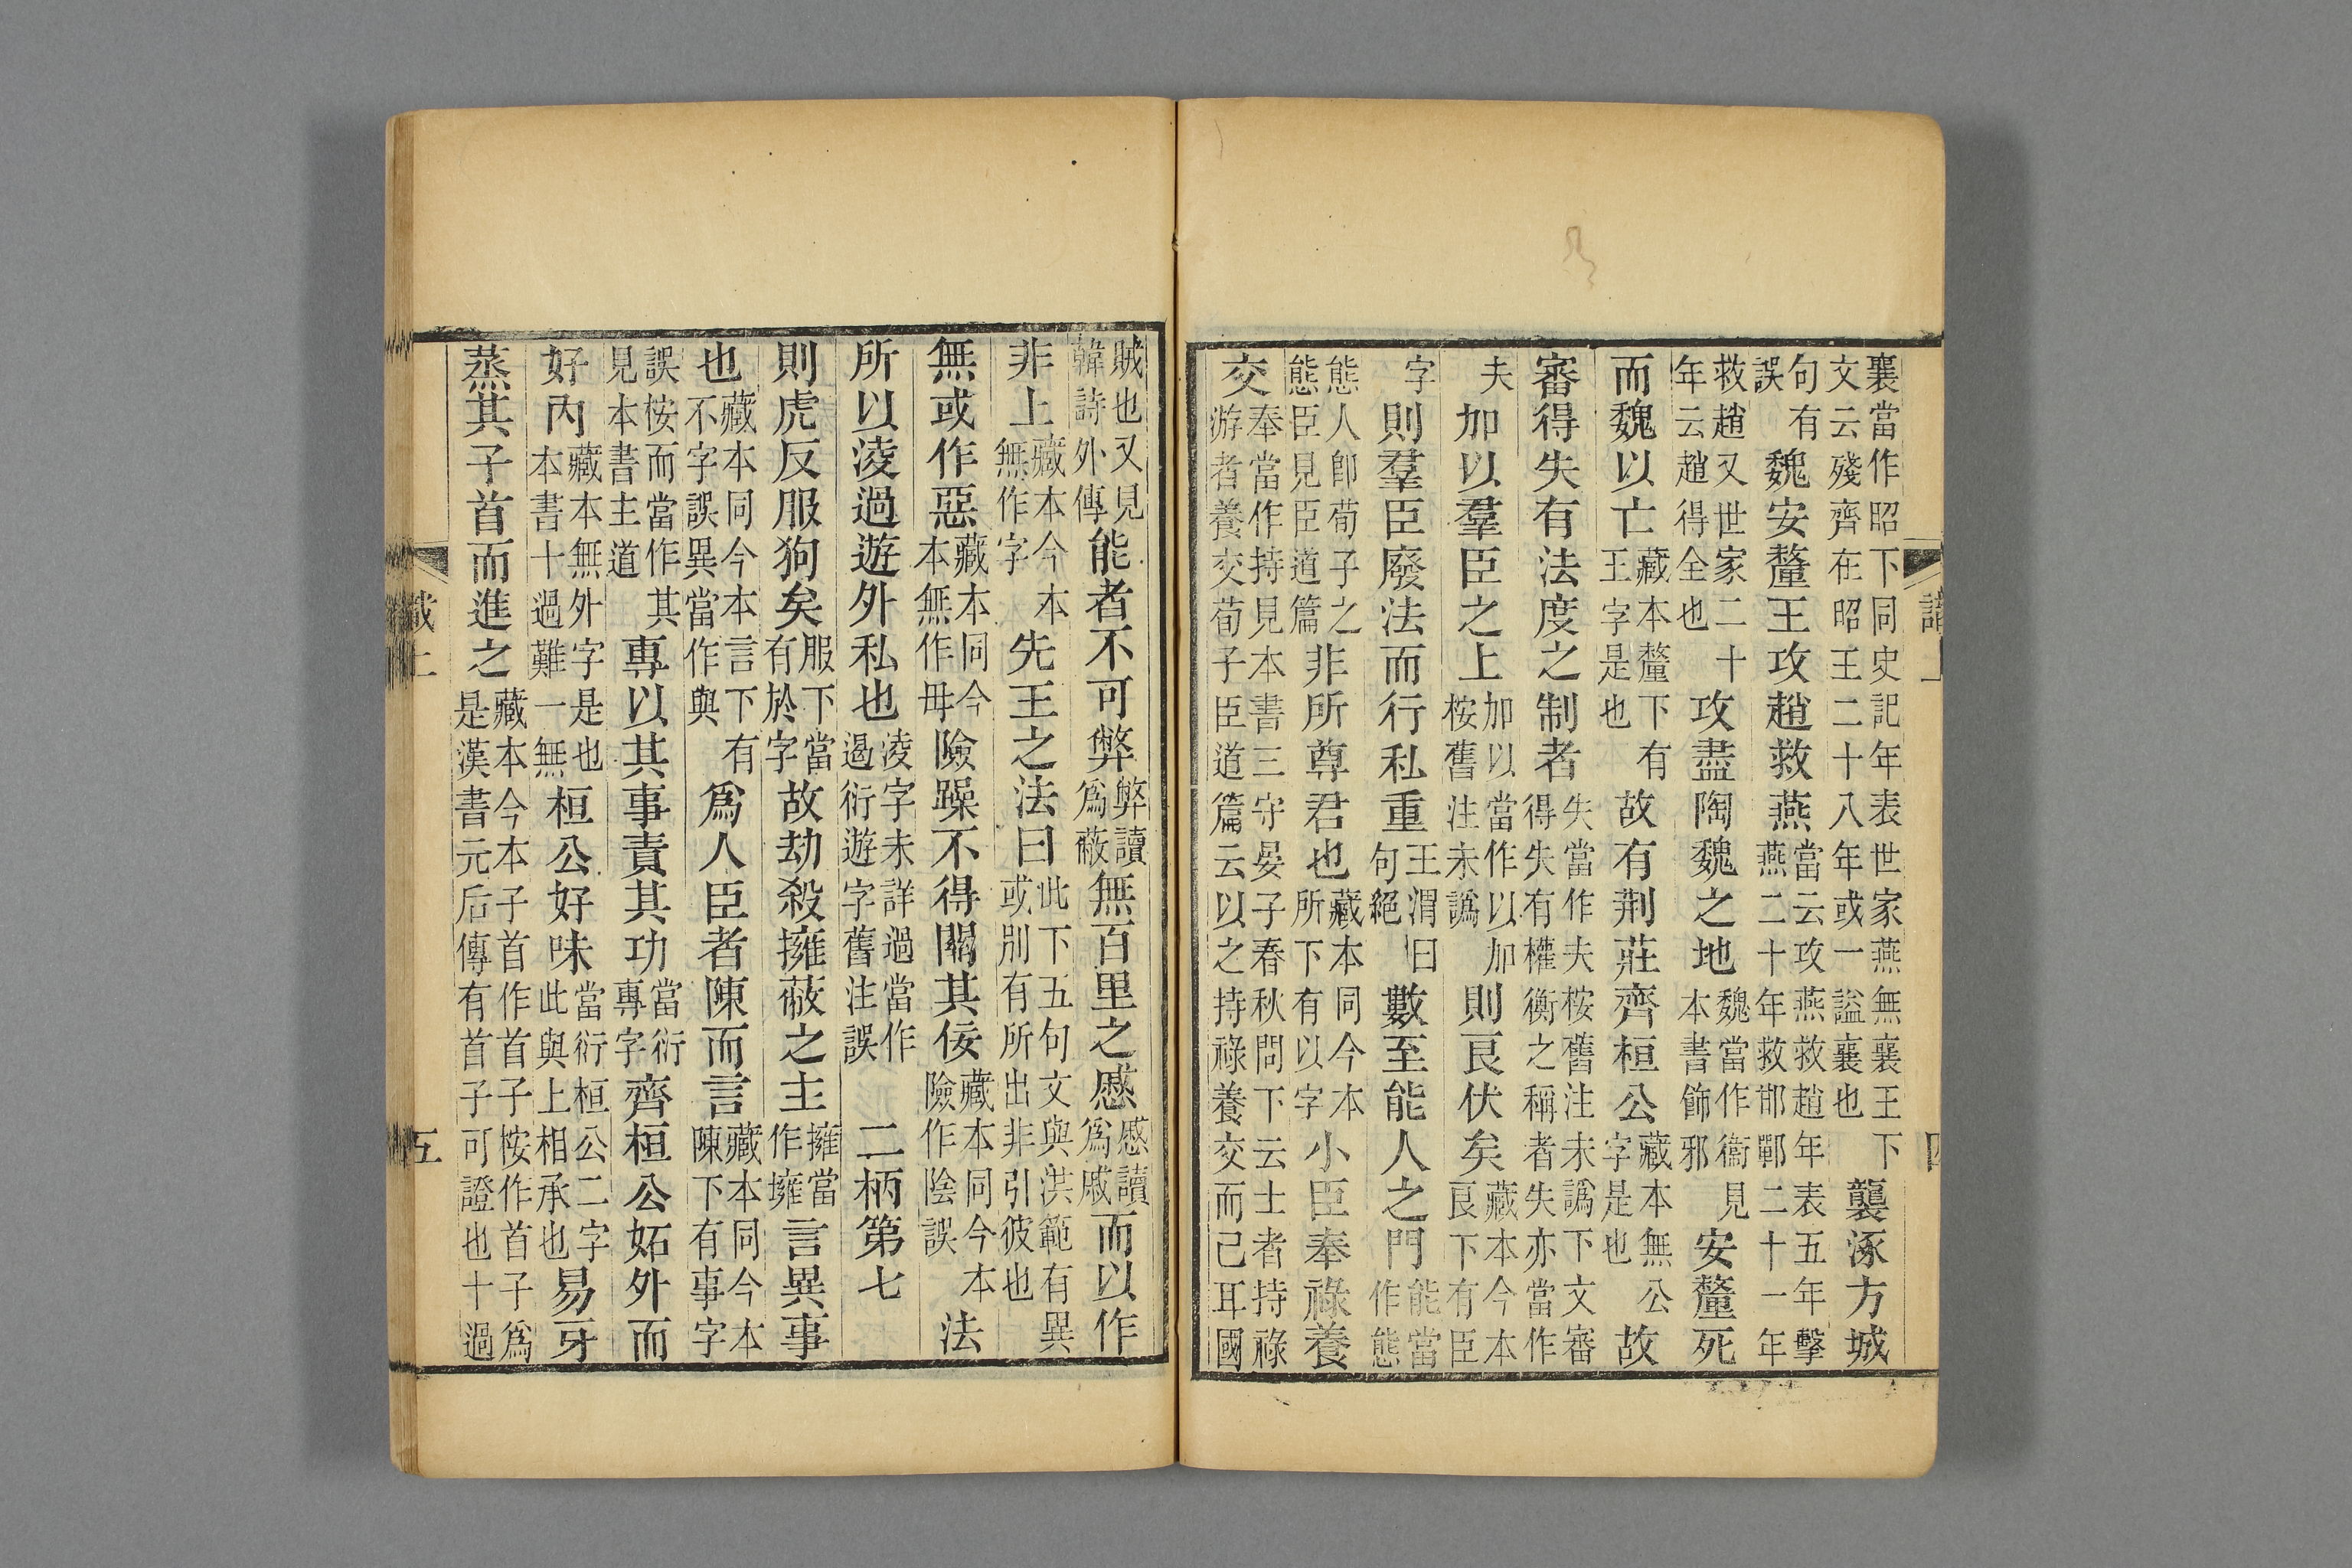 襄當作昭下同史記年表世家燕無襄王下
文云殘齊在昭王二十八年或一謚襄也
襲涿方城
句有
誤
魏安釐王攻趙救燕
當云攻燕救趙年表五年擊
燕二十年救邯鄲二十一年
救趙又世家二十
年云趙得全也
攻盡陶魏之地
魏當作衞見
本書飾邪
安釐死
而魏以亡
藏本釐下有
王字是也
故有荆莊齊桓公
藏本無公
字是也
故
審得失有法度之制者
失當作夫桉舊注未譌下文審
得失有權衡之稱者失亦當作
夫
加以羣臣之上
加以當作以加
桉舊注未譌
則㫐伏矣
藏本今本
㫐下有臣
字
則羣臣廢法而行私重
王渭曰
句絕
數至能人之門
能當
作態
態人卽荀子之
態臣見臣道篇
非所尊君也
藏本同今本
所下有以字
小臣奉祿養
交
奉當作持見本書三守晏子春秋問下云士者持祿
游者養交荀子臣道篇云以之持祿養交而已耳國
賊也又見
韓詩外傳
能者不可弊
弊讀
爲蔽
無百里之慼
慼讀
爲戚
而以作
非上
藏本今本
無作字
先王之法曰
此下五句文與洪範有異
或別有所出非引彼也
無或作惡
藏本同今
本無作毋
險躁不得關其佞
藏本同今本
險作陰誤
法
所以淩過遊外私也
淩字未詳過當作
遏衍遊字舊注誤
二柄第七
則虎反服狗矣
服下當
有於字
故劫殺擁蔽之主
擁當
作壅
言異事
也
藏本同今本言下有
不字誤異當作與
爲人臣者陳而言
藏本同今本
陳下有事字
誤桉而當作其
見本書主道
專以其事責其功
當衍
專字
齊桓公妬外而
好內
藏本無外字是也
本書十過難一無
桓公好味
當衍桓公二字
此與上相承也
易牙
蒸其子首而進之
藏本今本子首作首子桉作首子爲
是漢書元后傳有首子可證也十過
五